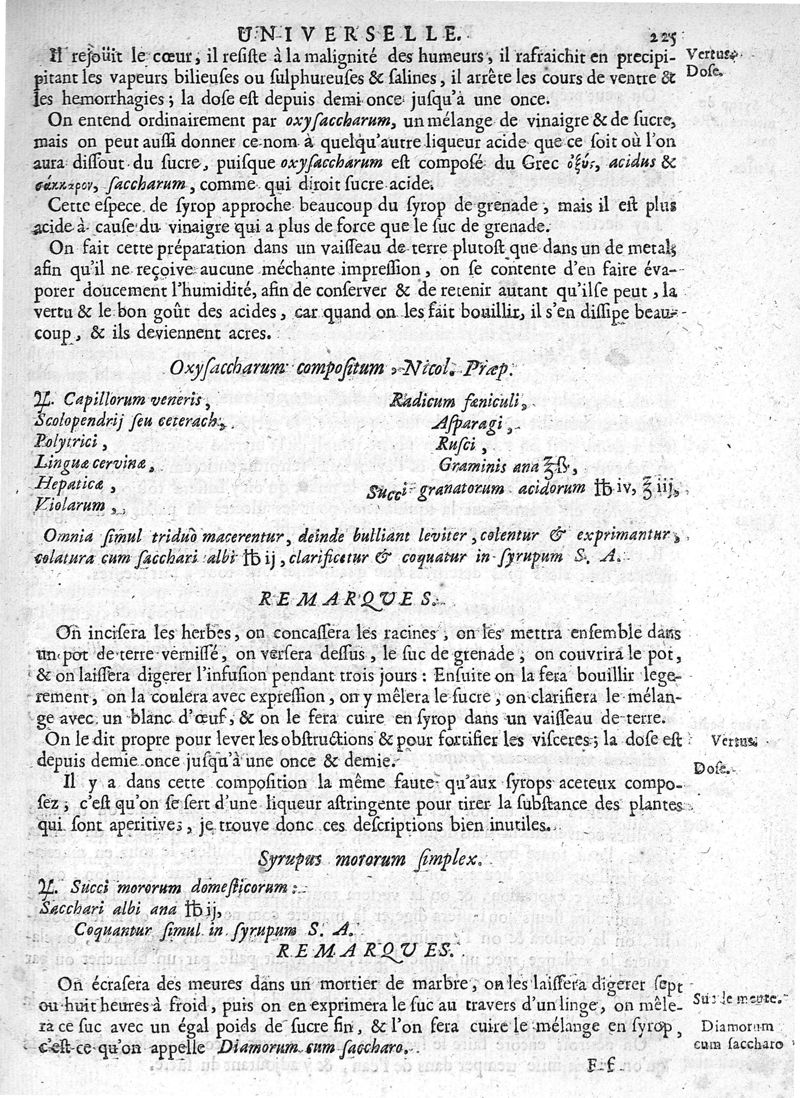 UNIVERSELLE. 225
Il rejoüit le cœur, il resiste à la malignité des humeurs, il rafraichit en precipi- Vertus.
pitant les vapeurs bilieuses ou sulphureuses & salines, il arrête les cours de ventre & Dose.
les hemorrhagies ; la dose est depuis demi once jusqu'à une once.
On entend ordinairement par oxysaccharum, un mélange de vinaigre & de sucre,
mais on peut aussi donner ce nom à quelqu'autre liqueur acide que ce soit où l'on
aura dissout du sucre, puisque oxysaccharum est composé du Grec ὀξύς, acidus &
σάκκαρον, saccharum, comme qui diroit sucre acide.
Cette espece de syrop approche beaucoup du syrop de grenade, mais il est plus
acide à cause du vinaigre qui a plus de force que le suc de grenade.
On fait cette préparation dans un vaisseau de terre plutost que dans un de metal,
afin qu'il ne reçoive aucune méchante impression, on se contente d'en faire éva-
porer doucement l'humidité, afin de conserver & de retenir autant qu'il se peut, la
vertu & le bon goût des acides, car quand on les fait bouillir, il s'en dissipe beau-
coup, & ils deviennent acres.
Oxysaccharum compositum, Nicol. Præp.
♃. Capillorum veneris, Radicum fæniculi,
Scolopendrij seu ceterach, Asparagi,
Polytrici, Rusci,
Linguæ cervinæ, Graminis ana ʒ̄ß,
Hepaticæ, Succi granatorum acidorum ℔ iv, ℥ iij,
Violarum,
Omnia simul triduò macerentur, deinde bulliant leviter, colentur & exprimantur,
colatura cum sacchari albi ℔ ij, clarificetur & coquatur in syrupum S. A.
REMARQUES.
On incisera les herbes, on concassera les racines, on les mettra ensemble dans
un pot de terre vernissé, on versera dessus, le suc de grenade ; on couvrira le pot,
& on laissera digerer l'infusion pendant trois jours : Ensuite on la fera bouillir lege-
rement, on la coulera avec expression, on y mêlera le sucre, on clarifiera le mélan-
ge avec un blanc d'œuf, & on le fera cuire en syrop dans un vaisseau de terre.
On le dit propre pour lever les obstructions & pour fortifier les visceres ; la dose est Vertus.
depuis demie once jusqu'à une once & demie. Dose.
Il y a dans cette composition la même faute qu'aux syrops aceteux compo-
sez, c'est qu'on se sert d'une liqueur astringente pour tirer la substance des plantes
qui sont aperitives, je trouve donc ces descriptions bien inutiles.
Syrupus mororum simplex.
♃. Succi mororum domesticorum :
Sacchari albi ana ℔ ij,
Coquantur simul in syrupum S. A.
REMARQUES.
On écrasera des meures dans un mortier de marbre, on les laissera digerer sept
ou huit heures à froid, puis on en exprimera le suc au travers d'un linge, on mêle- Suc de meure.
ra ce suc avec un égal poids de sucre fin, & l'on fera cuire le mélange en syrop, Diamorum
c'est ce qu'on appelle Diamorum cum saccharo. cum saccharo
F f